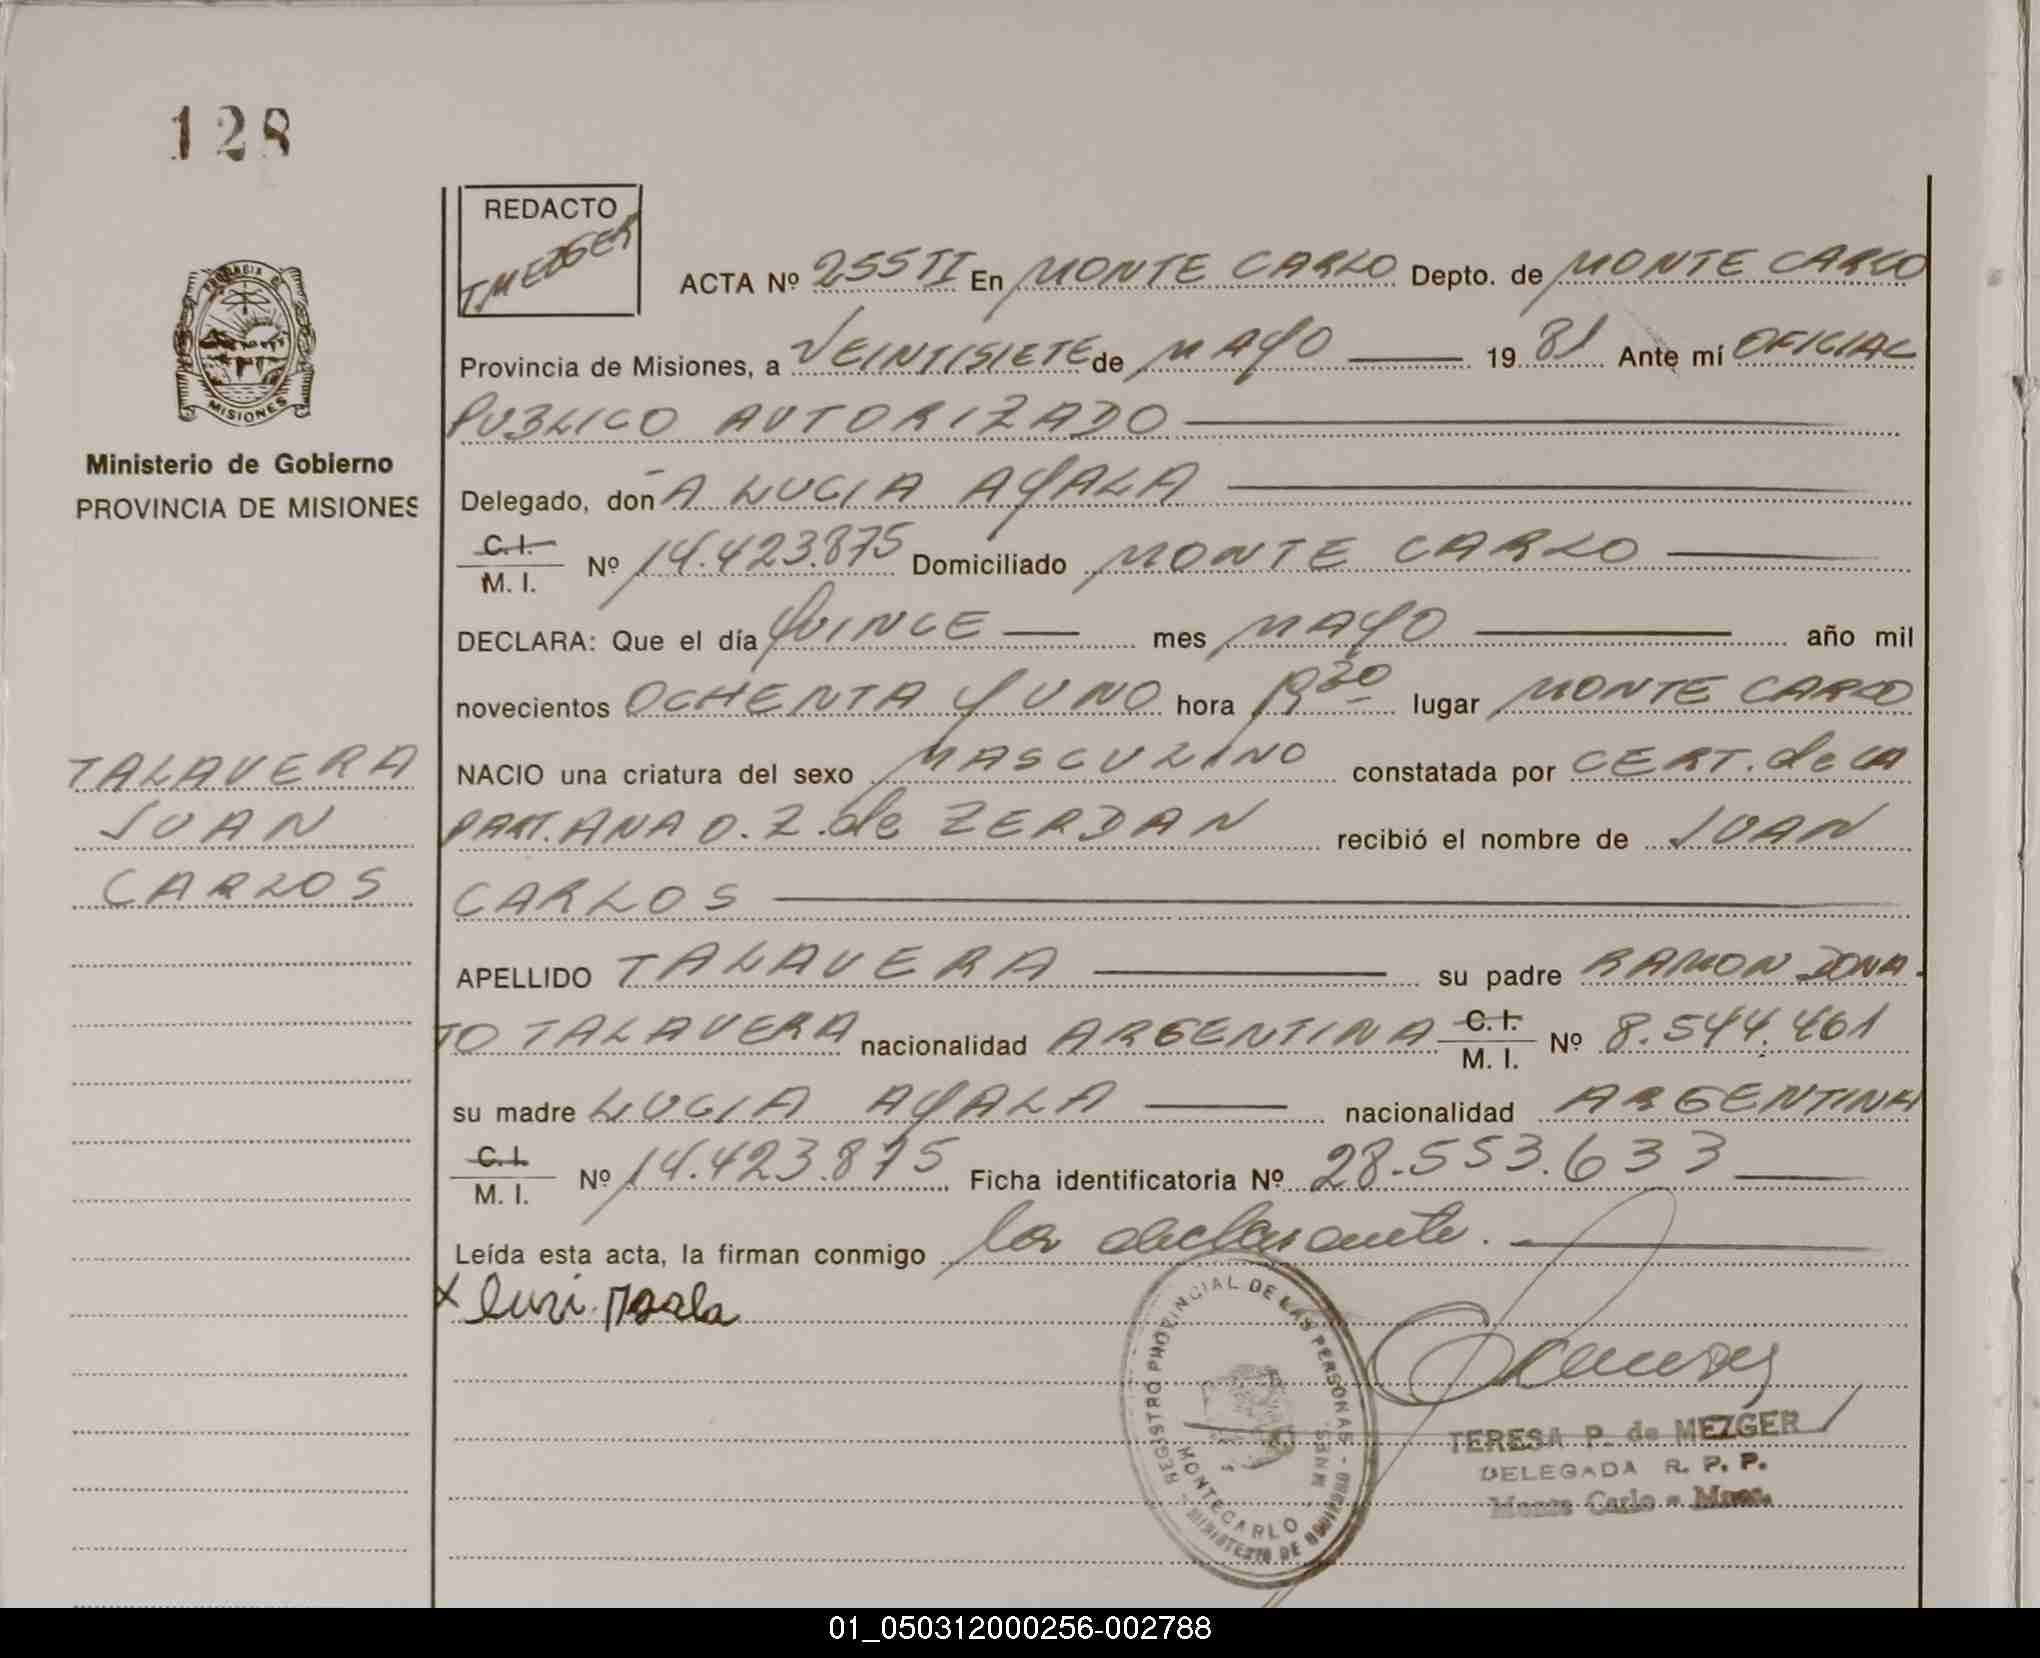 128
REDACTO
T. MEZGER
ACTA Nº 255 TI En MONTE CARLO Depto. de MONTE CARLO
Provincia de Misiones, a VEINTISIETE de MAYO 19 81 Ante mí OFICIAL
PUBLICO AUTORIZADO
PROVINCIA DE
MISIONES
Ministerio de Gobierno
PROVINCIA DE MISIONES
Delegado, donA LUCIA AYALA
C.I.
M. I. Nº 14.423.875 Domiciliado MONTE CARLO
DECLARA: Que el día QUINCE mes MAYO año mil
novecientos OCHENTA Y UNO hora lugar MONTE CARLO
NACIO una criatura del sexo MASCULINO constatada por CERT. de LA
PART. ANA O. Z. de ZERDAN recibió el nombre de JUAN
CARLOS
TALAVERA
JUAN
CARLOS
APELLIDO TALAVERA su padre RAMON DONA-
TO TALAVERA nacionalidad ARGENTINA C.I. M. I. Nº 8.544.461
su madre LUCIA AYALA nacionalidad ARGENTINA
C.I.
M. I. Nº 14.423.875 Ficha identificatoria Nº 28.553.633
Leída esta acta, la firman conmigo la declarante.
x Luci Ayala
REGISTRO PROVINCIAL DE LAS PERSONAS - MINISTERIO DE GOBIERNO
MONTECARLO MNES.
TERESA P. de MEZGER
DELEGADA R. P. P.
Monte Carlo - Mnes.
01_050312000256-002788